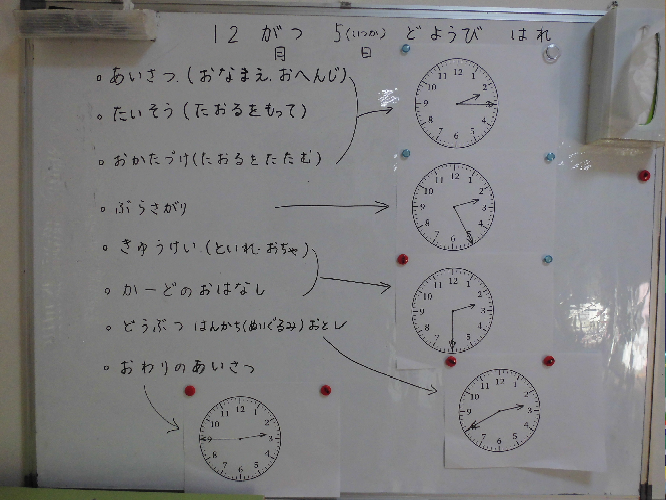 12 がつ 5(いつか) どようび はれ
月 日
○ あいさつ.(おなまえ.おへんじ)
○ たいそう(たおるをもって)
○ おかたづけ(たおるをたたむ)
○ ぶらさがり
○ きゅうけい.(といれ.おちゃ)
○ かーどのおはなし
○ どうぶつ はんかち(ぬいぐるみ)おとし
○ おわりのあいさつ
12 1 2 3 4 5 6 7 8 9 10 11
12 1 2 3 4 5 6 7 8 9 10 11
12 1 2 3 4 5 6 7 8 9 10 11
12 1 2 3 4 5 6 7 8 9 10 11
12 1 2 3 4 5 6 7 8 9 10 11